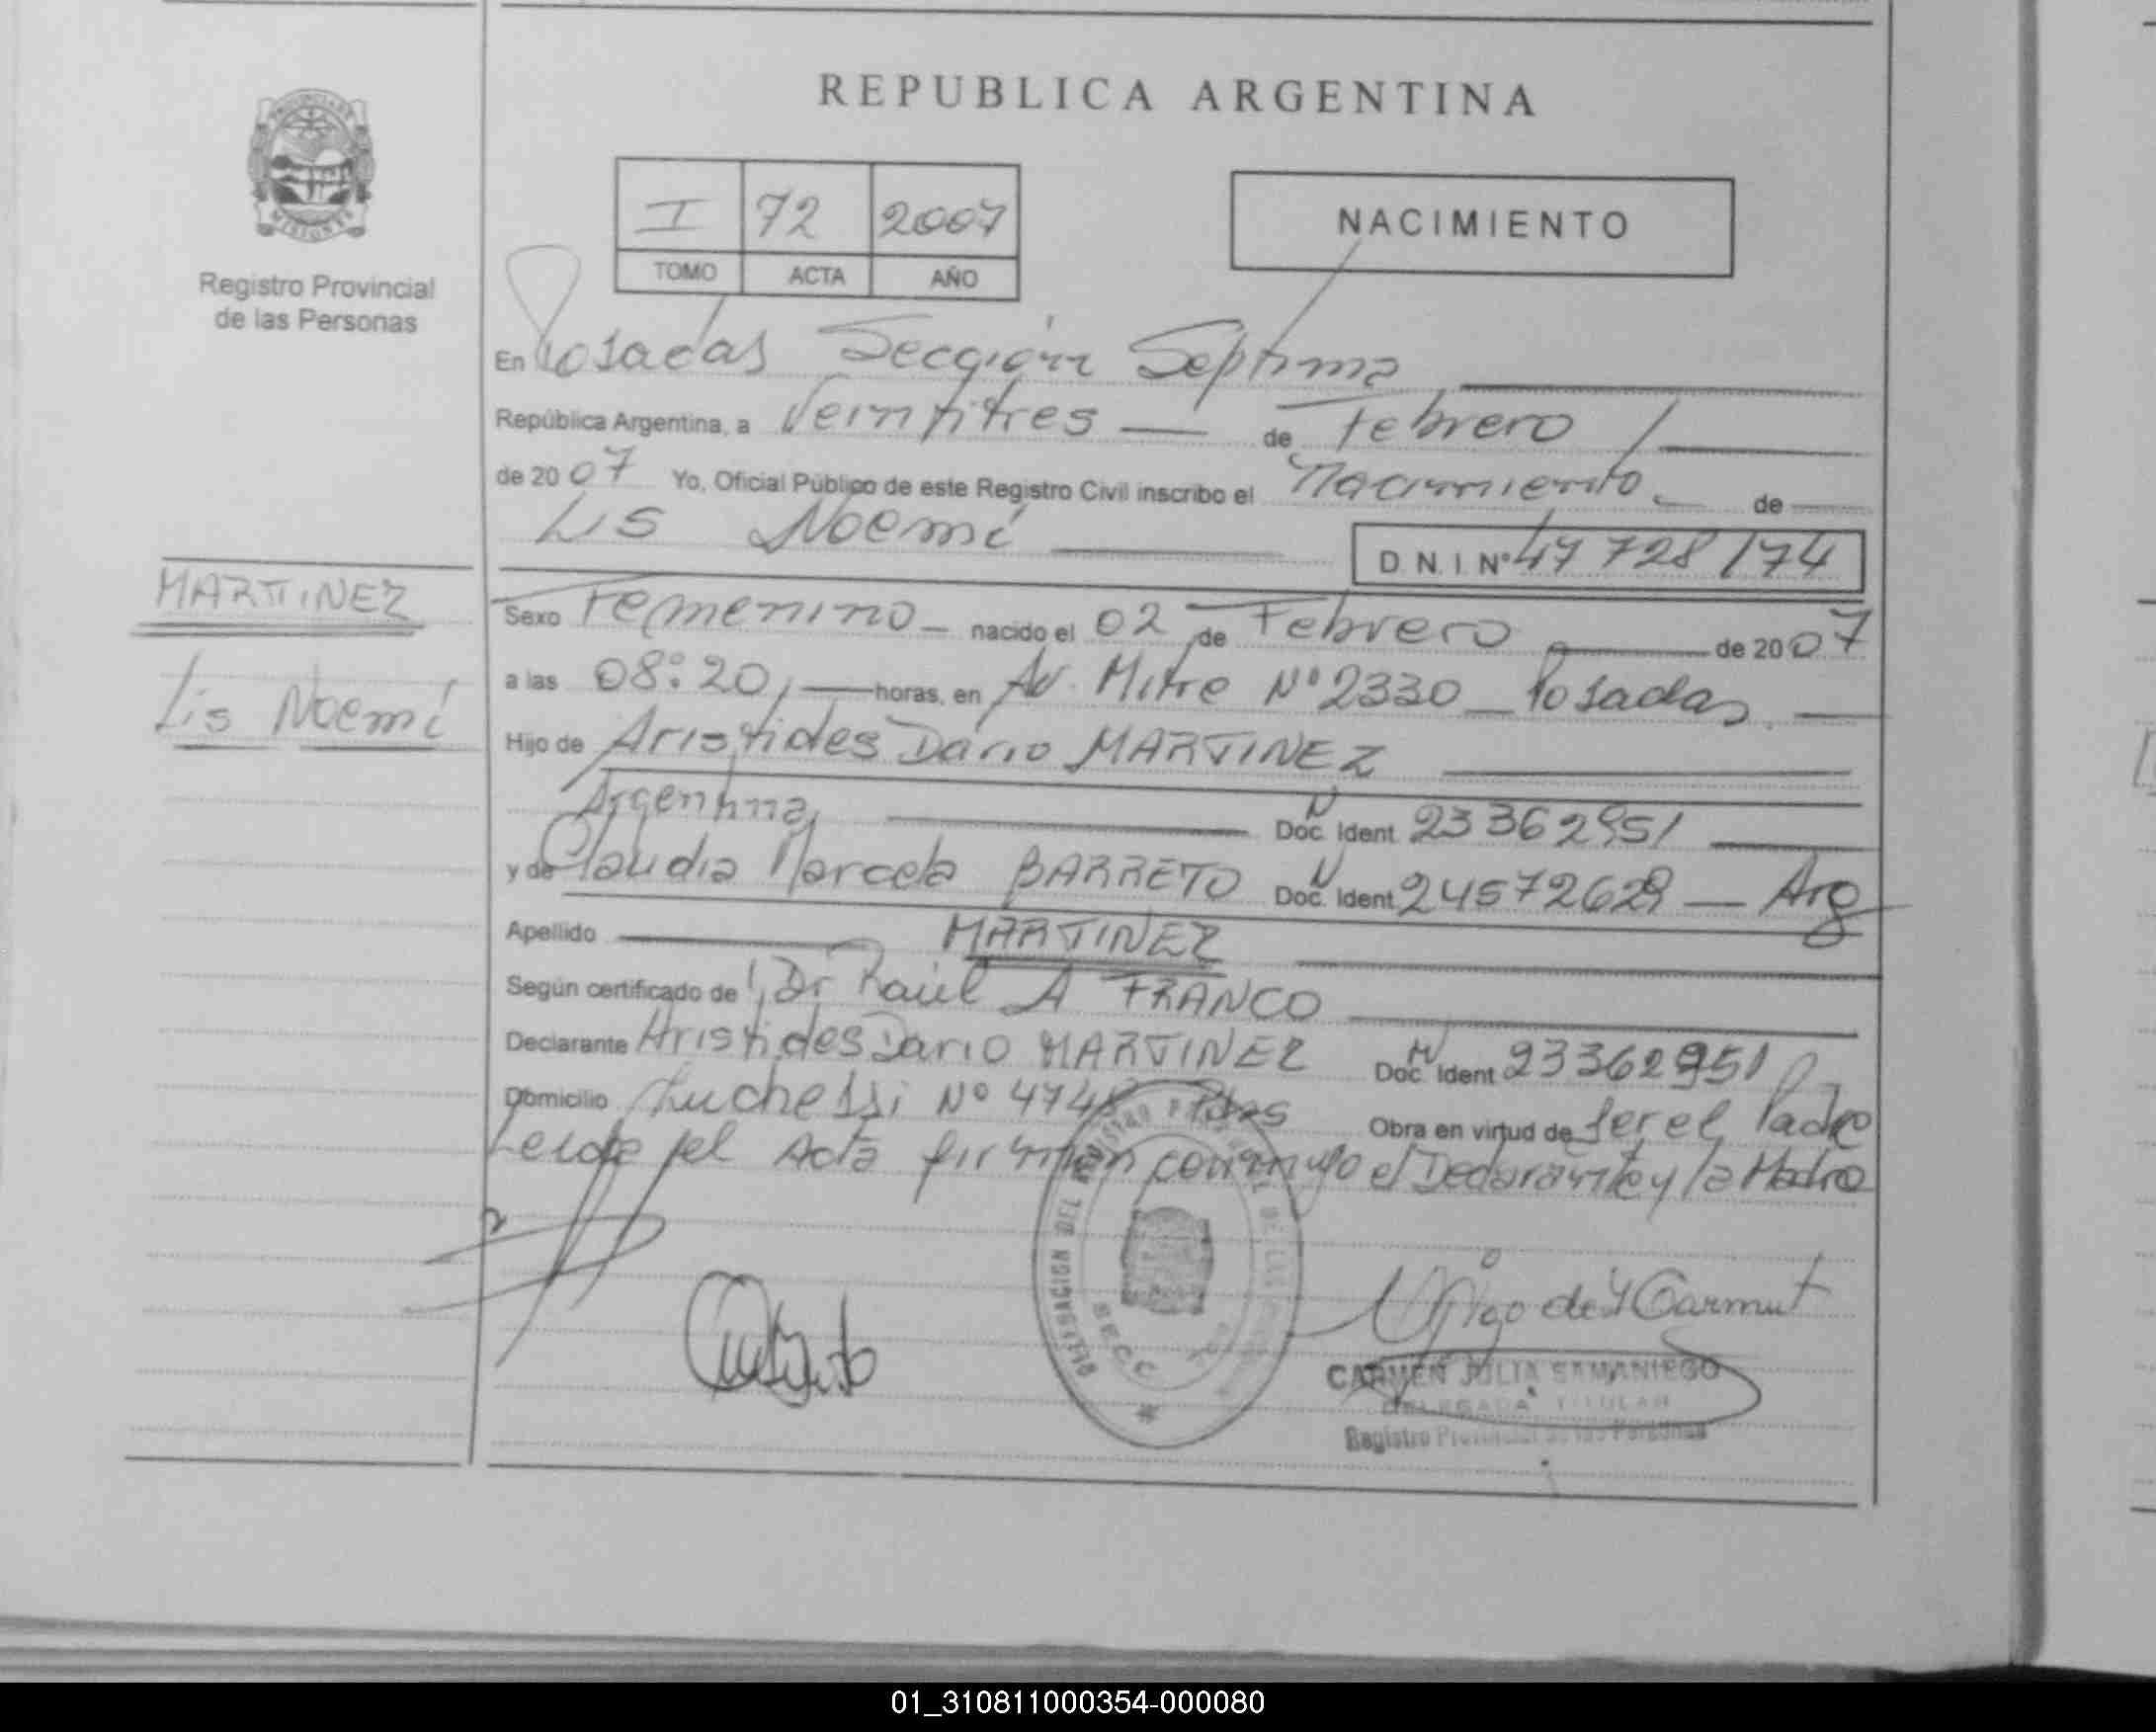 REPUBLICA ARGENTINA
PROVINCIA DE
MISIONES
Registro Provincial
de las Personas
I 72 2007
TOMO ACTA AÑO
NACIMIENTO
En Posadas Sección Septima
República Argentina, a Veintitres de Febrero
de 2007 Yo, Oficial Público de este Registro Civil inscribo el Nacimiento de
Lis Noemí D.N.I. Nº 47 728 174
MARTINEZ
Lis Noemí
Sexo Femenino nacido el 02 de Febrero de 2007
a las 08:20, horas, en Av. Mitre Nº 2330 Posadas
Hijo de Aristides Dario MARTINEZ
Argentina Doc. Ident. 23362951
y de Claudia Marcela BARRETO Doc. Ident. 24572629 Arg
Apellido MARTINEZ
Según certificado de Dr Raúl A FRANCO
Declarante Aristides Dario MARTINEZ Doc. Ident. 23362951
Domicilio Luchessi Nº Pdas Obra en virtud de Ser el Padre
Leida el Acta firman conmigo el Declarante y la Madre
SECC
CARMEN JULIA SAMANIEGO
DELEGADA TITULAR
Registro Provincial de las Personas
01_310811000354-000080